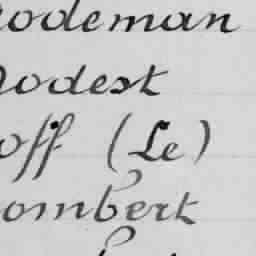 odeman
odest
off (Le)
ombert